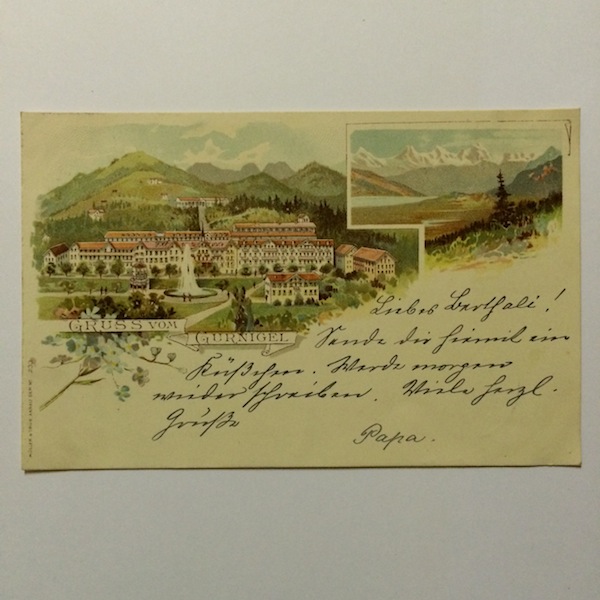 GRUSS VOM
GURNIGEL
Liebes Berthali!
Sende dir hiemit ein
Küßchen. Werde morgen
wieder schreiben. Viele herzl.
Grüße
Papa.